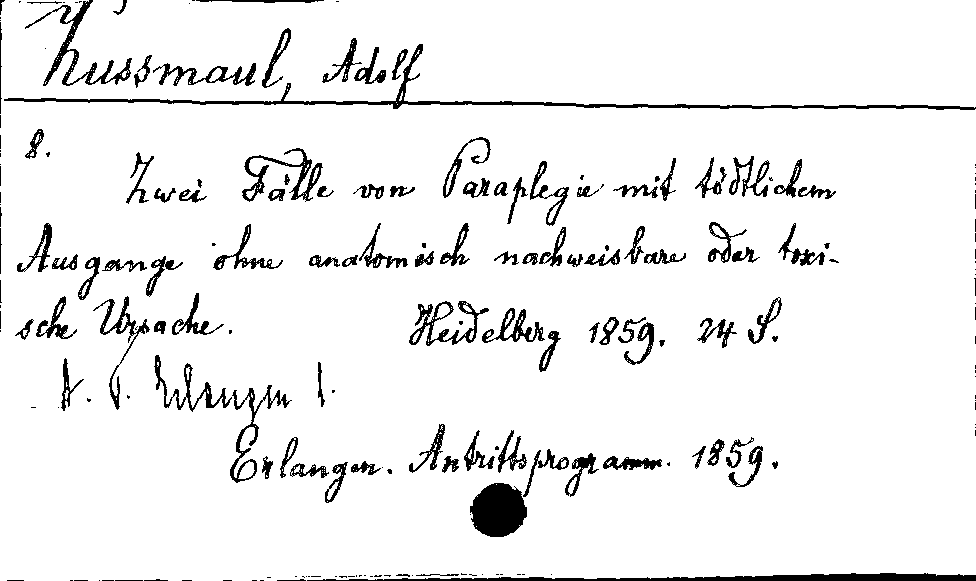 Kussmaul, Adolf
8.
Zwei Fälle von Paraplegie mit tödtlichem
Ausgange ohne anatomisch nachweisbare oder toxi-
sche Ursache. Heidelberg 1859. 24 S.
A. P. Erlangen
Erlangen. Antrittsprogramm. 1859.